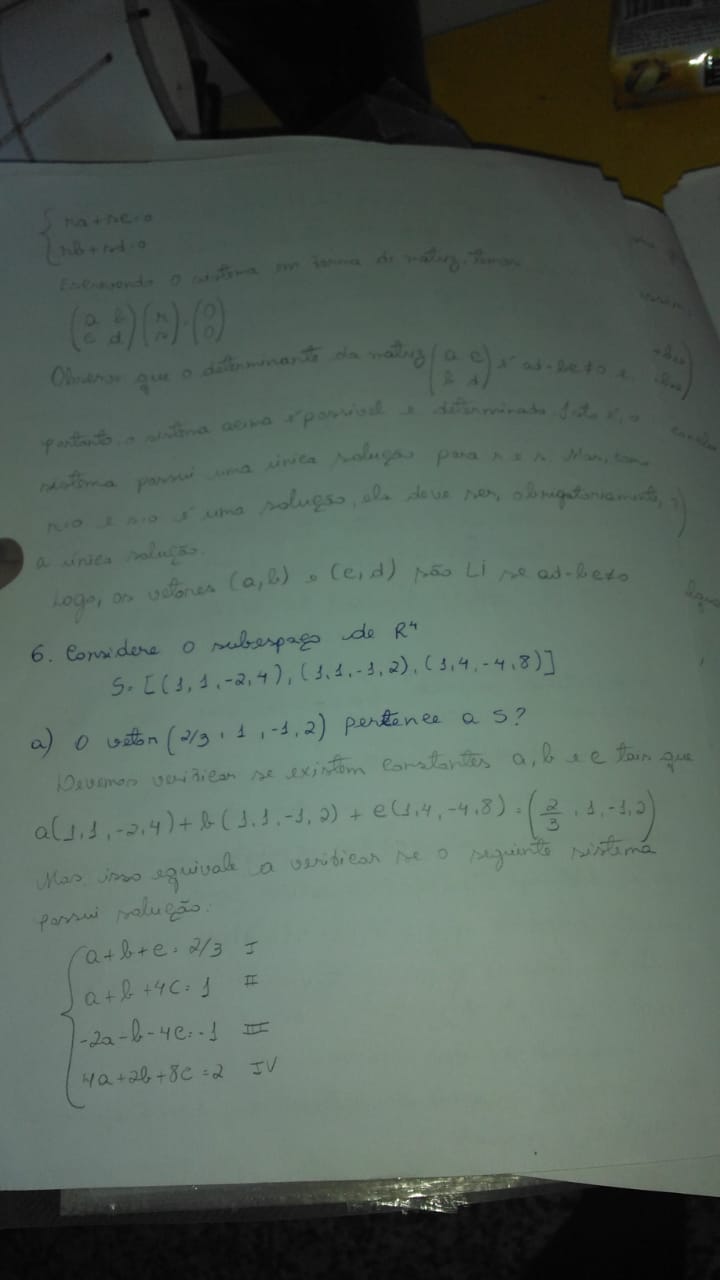 { ra + sc = 0
{ rb + sd = 0
Escrevendo o sistema em forma de matriz, temos
(a b; c d) (r; s) = (0; 0)
Observe que o determinante da matriz (a c; b d) é ad-bc≠0 e,
portanto, o sistema acima é possível e determinado. Isto é, o
sistema possui uma única solução para r e s. Mas, como
r=0 e s=0 é uma solução, ela deve ser, obrigatoriamente,
a única solução.
Logo, os vetores (a,b) e (c,d) são LI se ad-bc≠0
6. Considere o subespaço de R⁴
S= [(1,1,-2,4), (1,1,-1,2), (1,4,-4,8)]
a) O vetor (2/3, 1, -1, 2) pertence a S?
Devemos verificar se existem constantes a, b e c tais que
a(1,1,-2,4) + b(1,1,-1,2) + c(1,4,-4,8) = (2/3, 1, -1, 2)
Mas, isso equivale a verificar se o seguinte sistema
possui solução:
{ a+b+c = 2/3 I
a+b+4c = 1 II
-2a-b-4c = -1 III
4a+2b+8c = 2 IV